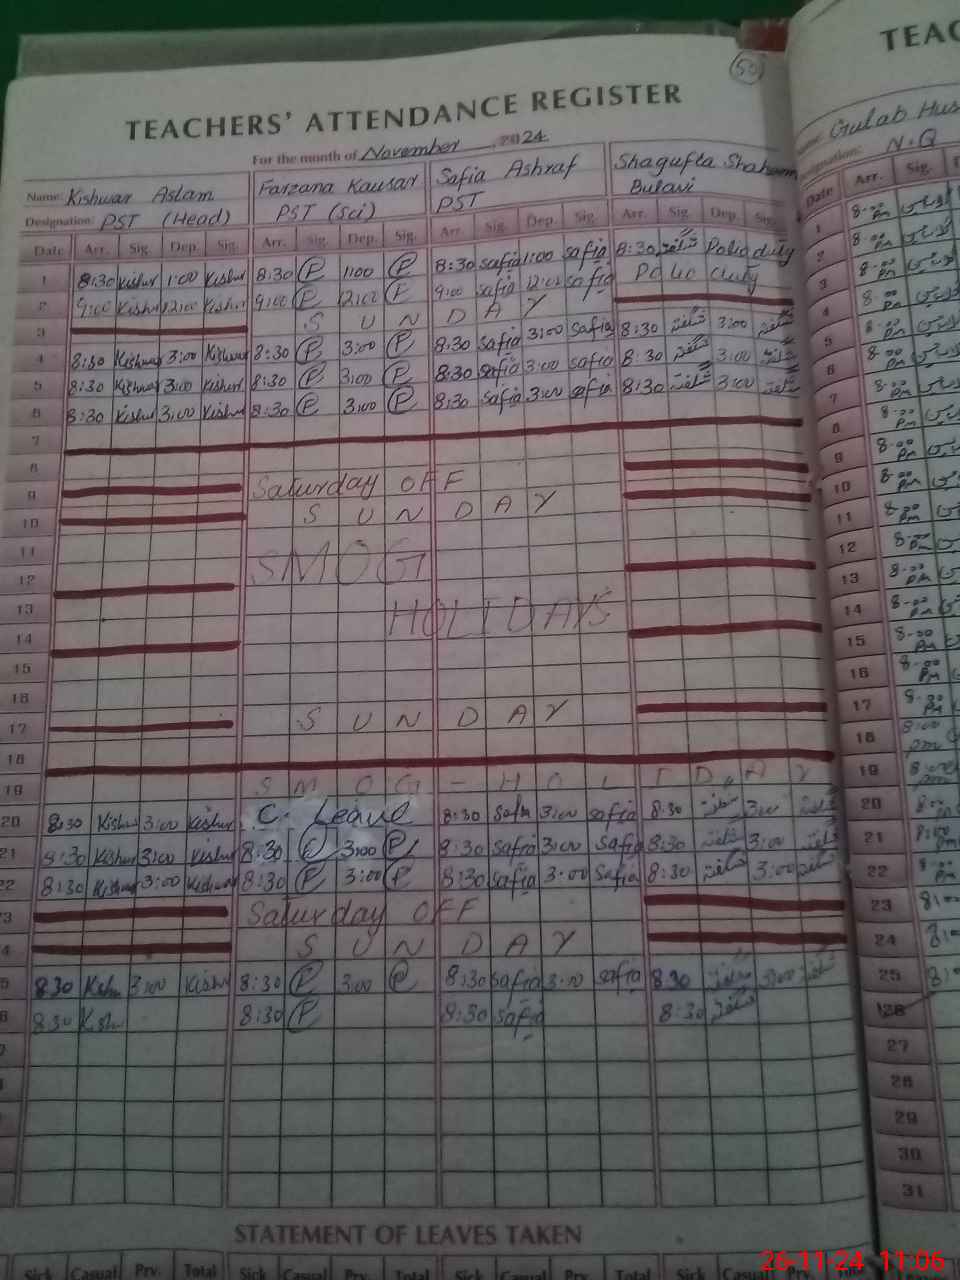 50
TEACHERS' ATTENDANCE REGISTER
For the month of November 2024
Name: Kishwar Aslam Farzana Kausar Safia Ashraf Shagufta Shaheen
Designation: PST (Head) PST (Sci) PST Bulavi
Date Arr. Sig. Dep. Sig. Arr. Sig. Dep. Sig. Arr. Sig. Dep. Sig. Arr. Sig. Dep. Sig.
1 8:30 Kishwr 1:00 Kishwr 8:30 P 1:00 P 8:30 Safia 1:00 Safia 8:30 شگفتہ Polio duty
2 9:00 Kishwr 12:00 Kishwr 9:00 P 12:00 P 9:00 Safia 12:00 Safia Polio duty
3 S U N D A Y
4 8:30 Kishwar 3:00 Kishwar 8:30 P 3:00 P 8:30 Safia 3:00 Safia 8:30 شگفتہ 3:00 شگفتہ
5 8:30 Kishwar 3:00 Kishwr 8:30 P 3:00 P 8:30 Safia 3:00 Safia 8:30 شگفتہ 3:00 شگفتہ
6 8:30 Kishwr 3:00 Kishwr 8:30 P 3:00 P 8:30 Safia 3:00 Safia 8:30 شگفتہ 3:00 شگفتہ
7
8
9 Saturday OFF
10 S U N D A Y
11
12 SMOG
13 HOLIDAYS
14
15
16
17 S U N D A Y
18
19 S M O G - H O L I D A Y
20 8:30 Kishwr 3:00 Kishwr C. Leave 8:30 Safia 3:00 Safia 8:30 شگفتہ 3:00 شگفتہ
21 8:30 Kishwr 3:00 Kishwr 8:30 P 3:00 P 8:30 Safia 3:00 Safia 8:30 شگفتہ 3:00 شگفتہ
22 8:30 Kishwar 3:00 Kishwar 8:30 P 3:00 P 8:30 Safia 3:00 Safia 8:30 شگفتہ 3:00 شگفتہ
3 Saturday OFF
4 S U N D A Y
5 8:30 Kishr 3:00 Kishwr 8:30 P 3:00 P 8:30 Safia 3:00 Safia 8:30 شگفتہ 3:00 شگفتہ
6 8:30 Kish 8:30 P 8:30 Safia 8:30 شگفتہ
STATEMENT OF LEAVES TAKEN
Sick Casual Prv. Total Sick Casual Prv. Total Sick Casual Prv. Total Sick Casual
TEAC
Gulab Hus
N.Q
Date Arr. Sig.
1 8-00 Pm
2 8-00 Pm
3 8-00 Pm
4 8-00 Pm
5 8-00 Pm
6 8-00 Pm
7 8-00 Pm
8 8-00 Pm
9 8-00 Pm
10 8-00 Pm
11 8-00 Pm
12 8-00 Pm
13 8-00 Pm
14 8-00 Pm
15 8-00 Pm
16 8-00 Pm
17 8-00 Pm
18 8:00 pm
19 8:00 pm
20 8:00 Pm
21 8:00 Pm
22 8:00 Pm
23
24
25
26
27
28
29
30
31
26-11-24 11:06